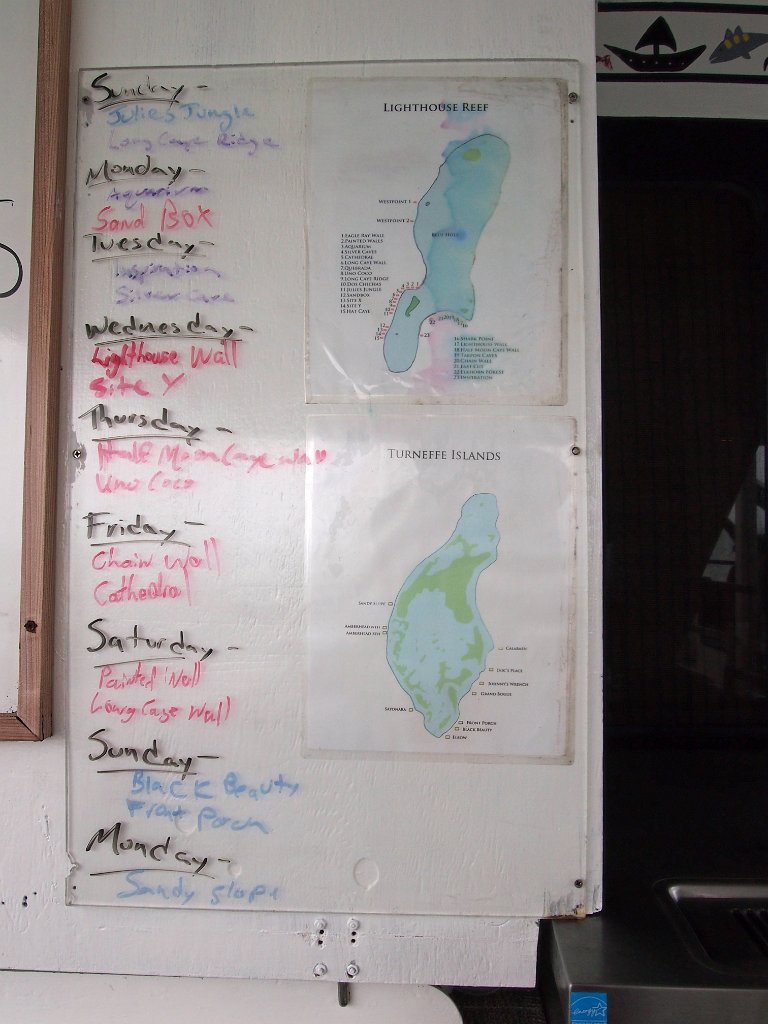 Sunday -
Julies Jungle
Long Caye Ridge
Monday -
Aquarium
Sand Box
Tuesday -
Inspiration
Silver Cave
Wednesday -
Lighthouse Wall
Site Y
Thursday -
Half Moon Caye wall
Uno Coco
Friday -
Chain Wall
Cathedral
Saturday -
Painted Wall
Long Caye Wall
Sunday -
Black Beauty
Front Porch
Monday -
Sandy Slope
LIGHTHOUSE REEF
WESTPOINT 1
WESTPOINT 2
BLUE HOLE
1 EAGLE RAY WALL
2 PAINTED WALLS
3 AQUARIUM
4 SILVER CAVES
5 CATHEDRAL
6 LONG CAVE WALL
7 QUEBRADA
8 UNO COCO
9 LONG CAYE RIDGE
10 DOS CHICHAS
11 JULIES JUNGLE
12 SANDBOX
13 SITE X
14 SITE Y
15 HAT CAYE
16 SHARK POINT
17 LIGHTHOUSE WALL
18 HALF MOON CAYE WALL
19 TARPON CAVES
20 CHAIN WALL
21 EAST CUT
22 ELKHORN FOREST
23 INSPIRATION
TURNEFFE ISLANDS
SANDY SLOPE
AMBERHEAD
AMBERHEAD
CALABASH
DOC'S PLACE
JOHNNY'S WRENCH
GRAND BOGUE
SAYONARA
FRONT PORCH
BLACK BEAUTY
ELBOW
energy